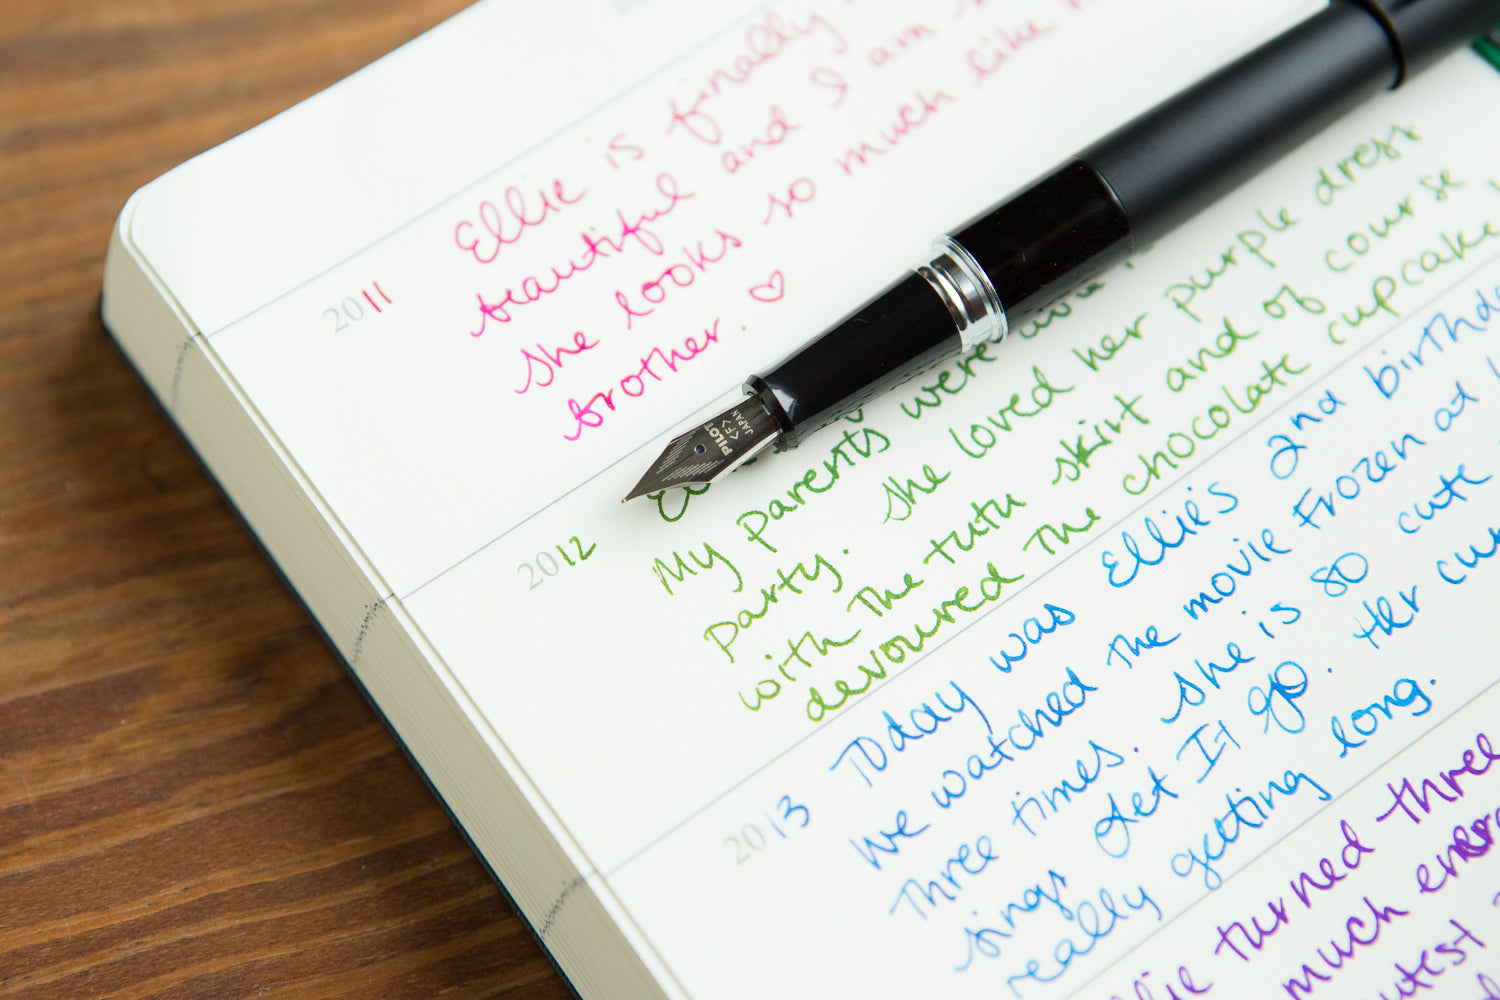 Ellie is finally
beautiful and I am
she looks so much like
brother. ♡
2011
My parents were
party. She loved her purple dress
with the tutu skirt and of course
devoured the chocolate cupcake
2012
Today was Ellie's 2nd birthday
We watched the movie Frozen at
three times. She is so cute
sings Let It go. Her
really getting long.
2013
turned three
much energy
PILOT
<F>
JAPAN